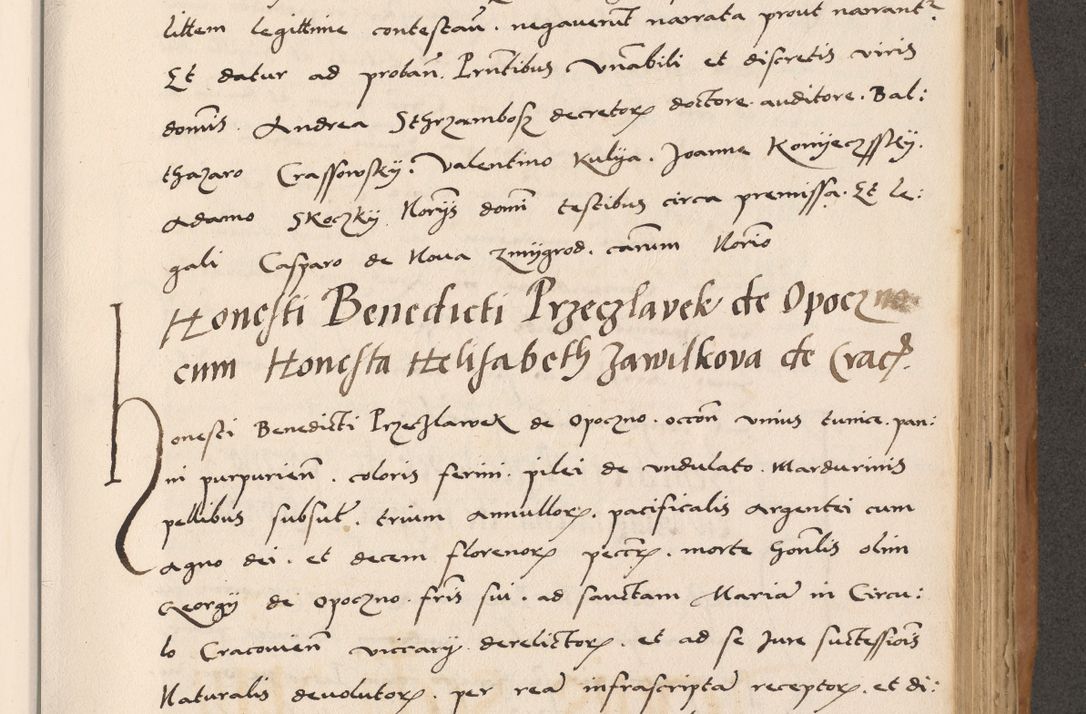 littem legittime contestaū. negaverūt narrata prout narrantᷣ.
Et datur ad probañ. Prñtibus Vnabili et discretis viris
domīs. Andrea Sthrzambosz decretoꝝ doctore. auditore. Bal:
thazaro Crassowsky. Valentino Kulya. Joanne Konyeczssky.
Adamo Skoczky Noryīs domī testibus circa premissa. Et le:
gali Casparo de Nova Zmygrod. canūm Norio
Honesti Benedicti Przeczlavek de Opoczno
cum Honesta Helisabeth Zawilkova de Cracꝫ.
Honesti Benedicti Przeczlawek de Opoczno. occoñ vnius tunice. pan:
ni purpurieñ. coloris ferini. pilei de undulato. Mardurinis
pellibus subsut̄. trium Annulloꝝ. pacificalis Argentei cum
Agno dei. et decem florenoꝝ pecc̄ꝝ. morte hoñlis olim
Georgy de Opoczno. fr̄is sui. ad sanctam Mariā in Circu:
lo Cracovieñ viccary. derelictoꝝ. et ad se Jure successiōis
Naturalis devolutoꝝ. per reā infrascriptā receptoꝝ. et di: